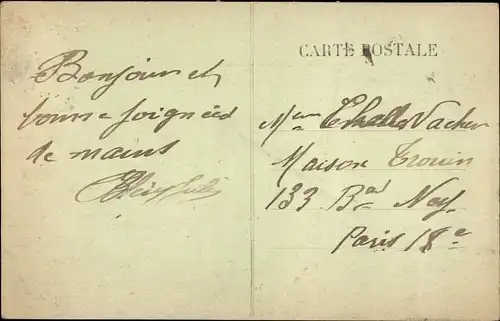 Bonjour et
bonne poignées
de mains
CARTE POSTALE
Mme Vacher
Maison Trouin
133 Bd Ney
Paris 18e